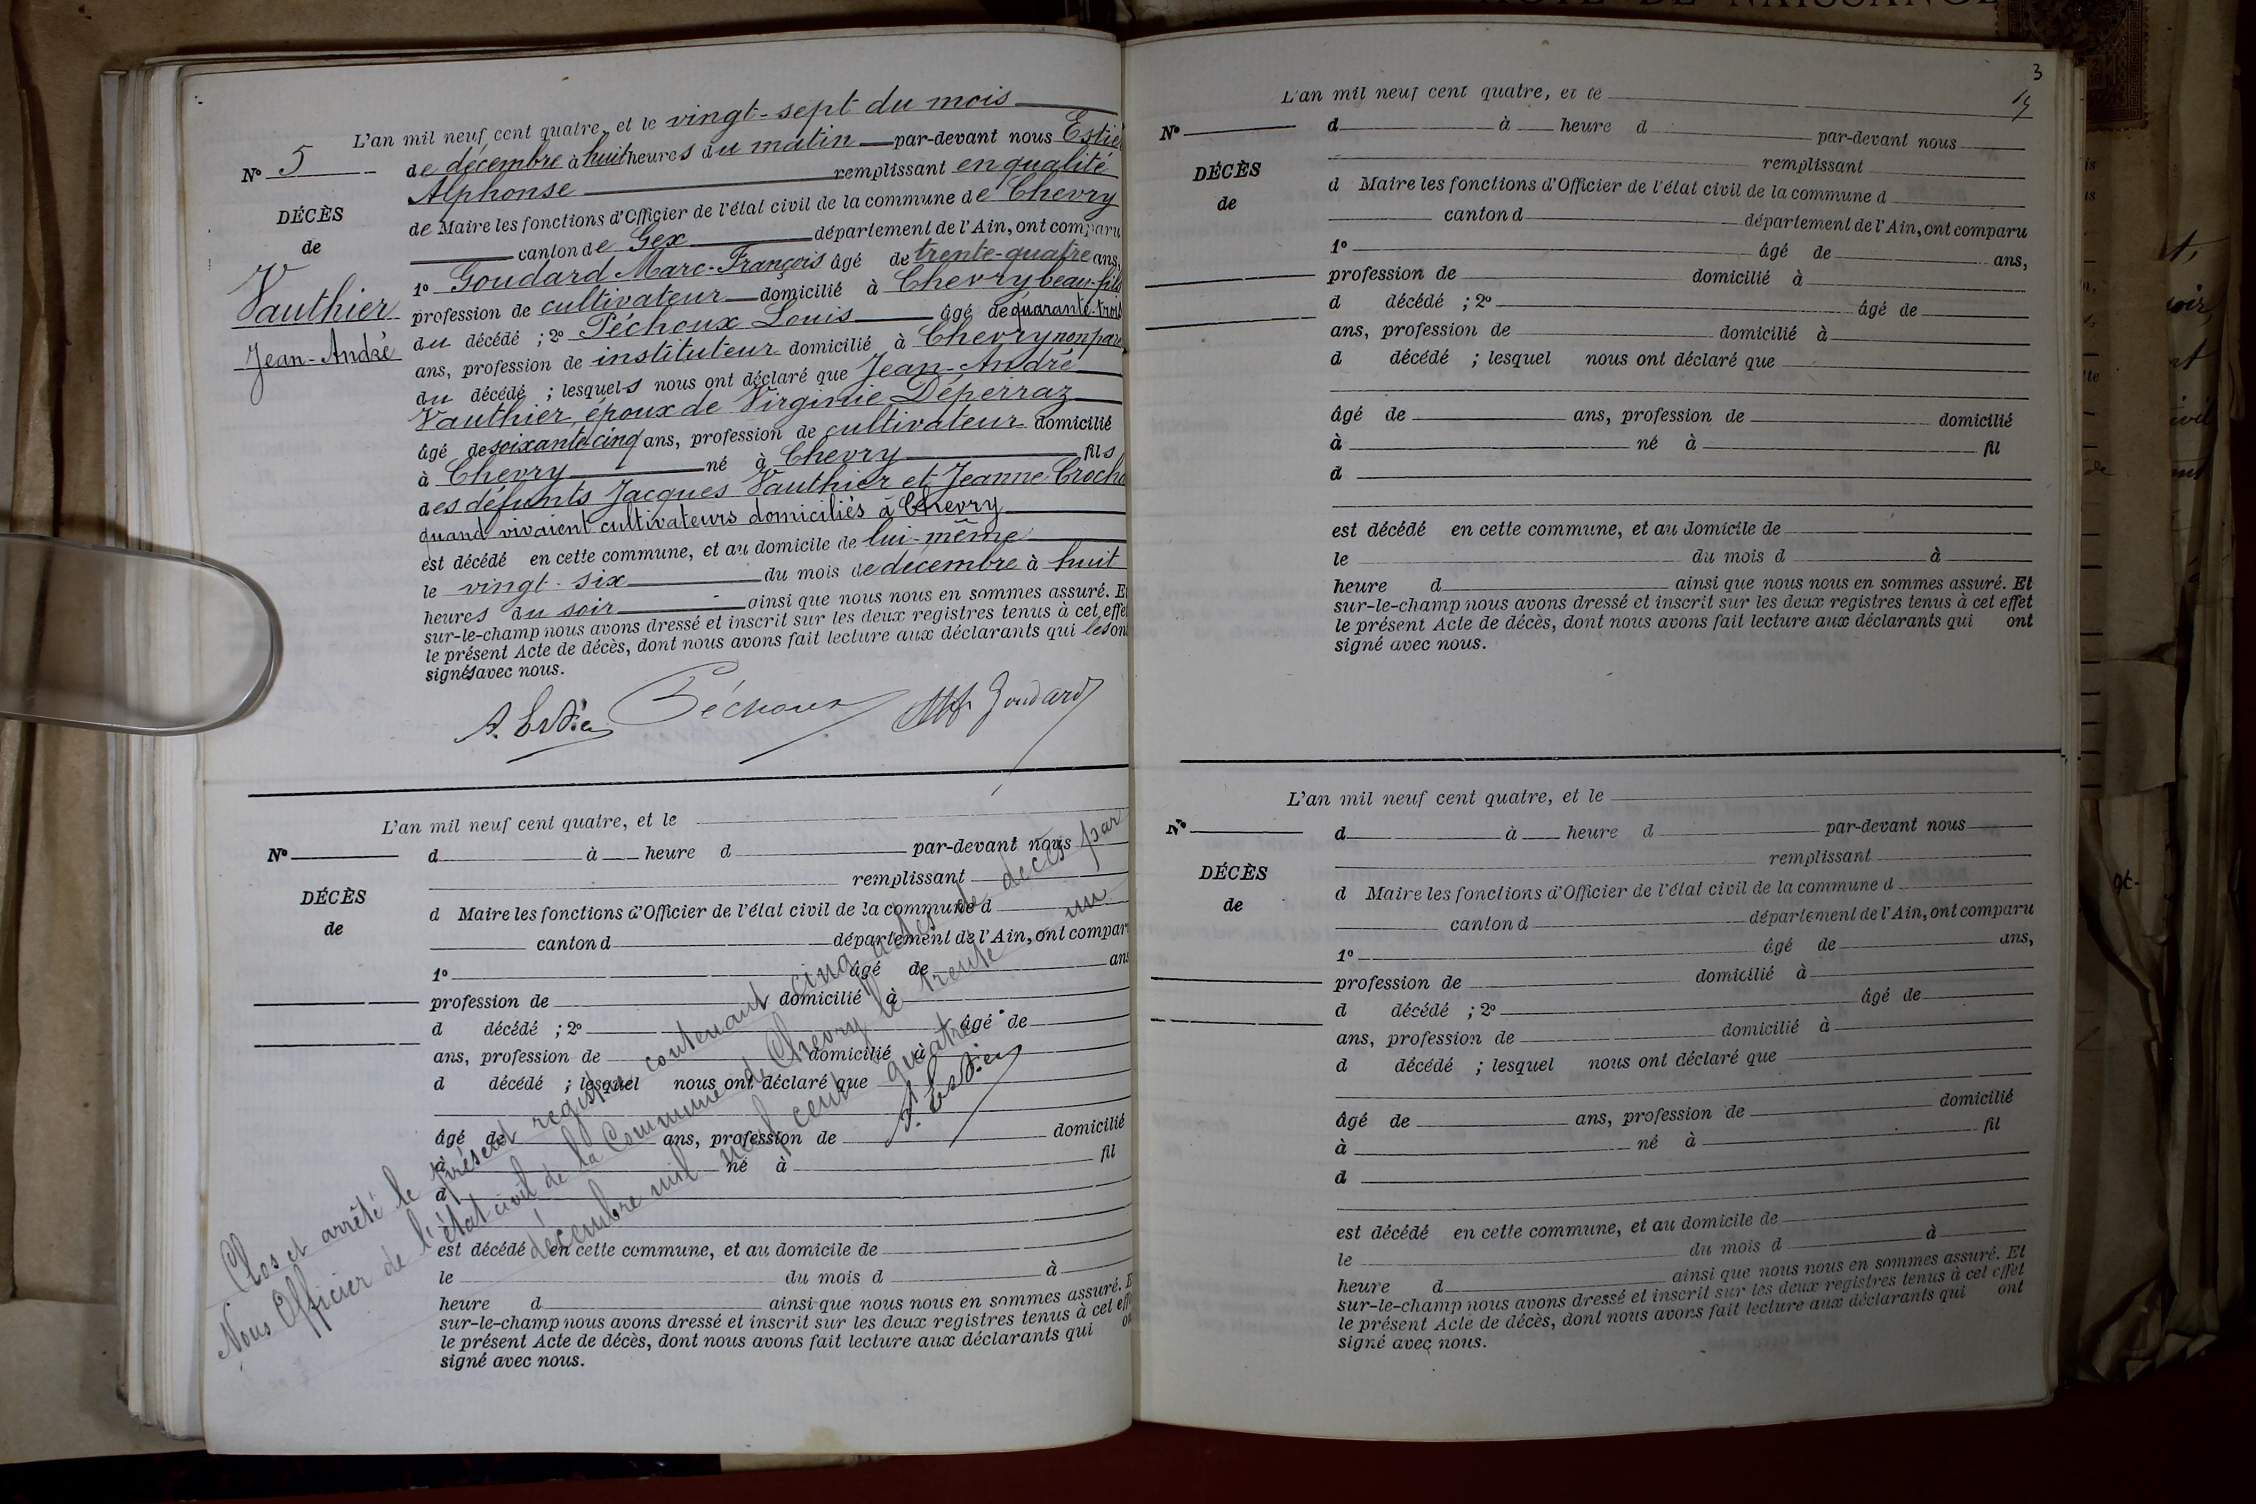 L'an mil neuf cent quatre, et le vingt-sept du mois
N° 5 de décembre à huit heures du matin par-devant nous Estier
Alphonse remplissant en qualité
DÉCÈS
de
Vauthier
Jean-André
de Maire les fonctions d'Officier de l'état civil de la commune de Chevry
canton de Gex département de l'Ain, ont comparu
1° Goudard Marc-François âgé de trente-quatre ans,
profession de cultivateur domicilié à Chevry beau-fils
du décédé ; 2° Péchoux Louis âgé de quarante-trois
ans, profession de instituteur domicilié à Chevry non paren
du décédé ; lesquels nous ont déclaré que Jean-André
Vauthier, époux de Virginie Déperraz
âgé de soixante cinq ans, profession de cultivateur domicilié
à Chevry né à Chevry fils
des défunts Jacques Vauthier et Jeanne Croch
quand vivaient cultivateurs domiciliés à Chevry
est décédé en cette commune, et au domicile de lui-même
le vingt-six du mois de décembre à huit
heures du soir ainsi que nous nous en sommes assuré. Et
sur-le-champ nous avons dressé et inscrit sur les deux registres tenus à cet effet
le présent Acte de décès, dont nous avons fait lecture aux déclarants qui les ont
signés avec nous.
A. Estier Péchoux MF Goudard
L'an mil neuf cent quatre, et le
N° d à heure d par-devant nous
remplissant
DÉCÈS
de
d Maire les fonctions d'Officier de l'état civil de la commune d
canton d département de l'Ain, ont compar
1° âgé de ans
profession de domicilié à
d décédé ; 2° âgé de
ans, profession de domicilié à
d décédé ; lesquel nous ont déclaré que
âgé de ans, profession de domicilié
à né à fil
d
est décédé en cette commune, et au domicile de
le du mois d à
heure d ainsi que nous nous en sommes assuré. E
sur-le-champ nous avons dressé et inscrit sur les deux registres tenus à cet eff
le présent Acte de décès, dont nous avons fait lecture aux déclarants qui on
signé avec nous.
Clos et arrêté le présent registre contenant cinq actes de décès par
Nous Officier de l'état civil de la Commune de Chevry le trente un
décembre mil neuf cent quatre
A. Estier
3
19
L'an mil neuf cent quatre, et le
N° d à heure d par-devant nous
remplissant
DÉCÈS
de
d Maire les fonctions d'Officier de l'état civil de la commune d
canton d département de l'Ain, ont comparu
1° âgé de ans,
profession de domicilié à
d décédé ; 2° âgé de
ans, profession de domicilié à
d décédé ; lesquel nous ont déclaré que
âgé de ans, profession de domicilié
à né à fil
d
est décédé en cette commune, et au domicile de
le du mois d à
heure d ainsi que nous nous en sommes assuré. Et
sur-le-champ nous avons dressé et inscrit sur les deux registres tenus à cet effet
le présent Acte de décès, dont nous avons fait lecture aux déclarants qui ont
signé avec nous.
L'an mil neuf cent quatre, et le
N° d à heure d par-devant nous
remplissant
DÉCÈS
de
d Maire les fonctions d'Officier de l'état civil de la commune d
canton d département de l'Ain, ont comparu
1° âgé de ans,
profession de domicilié à
d décédé ; 2° âgé de
ans, profession de domicilié à
d décédé ; lesquel nous ont déclaré que
âgé de ans, profession de domicilié
à né à fil
d
est décédé en cette commune, et au domicile de
le du mois d à
heure d ainsi que nous nous en sommes assuré. Et
sur-le-champ nous avons dressé et inscrit sur les deux registres tenus à cet effet
le présent Acte de décès, dont nous avons fait lecture aux déclarants qui ont
signé avec nous.